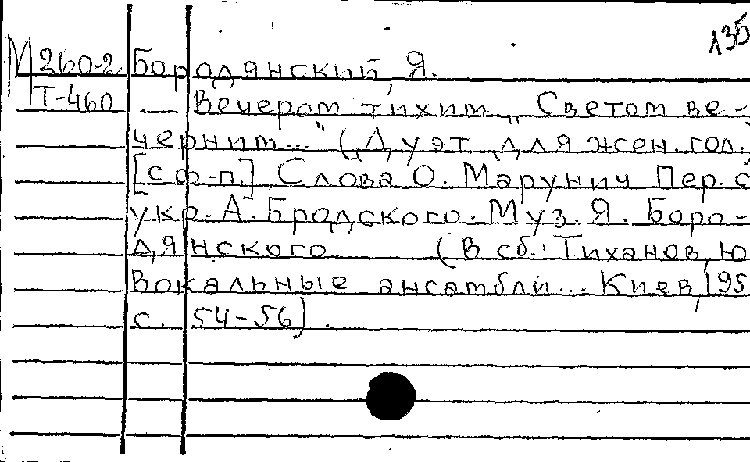 135
М 260-2 Бородянский, Я.
Т-460 — Вечером тихим, Светом ве-
черним..." (Дуэт для жен. гол.
[с ф-п.] Слова О. Марунич Пер. с
укр. А. Бродского. Муз. Я. Боро-
дянского (В сб.: Тиханов, Ю
Вокальные ансамбли... Киев, 195
с. 54-56).